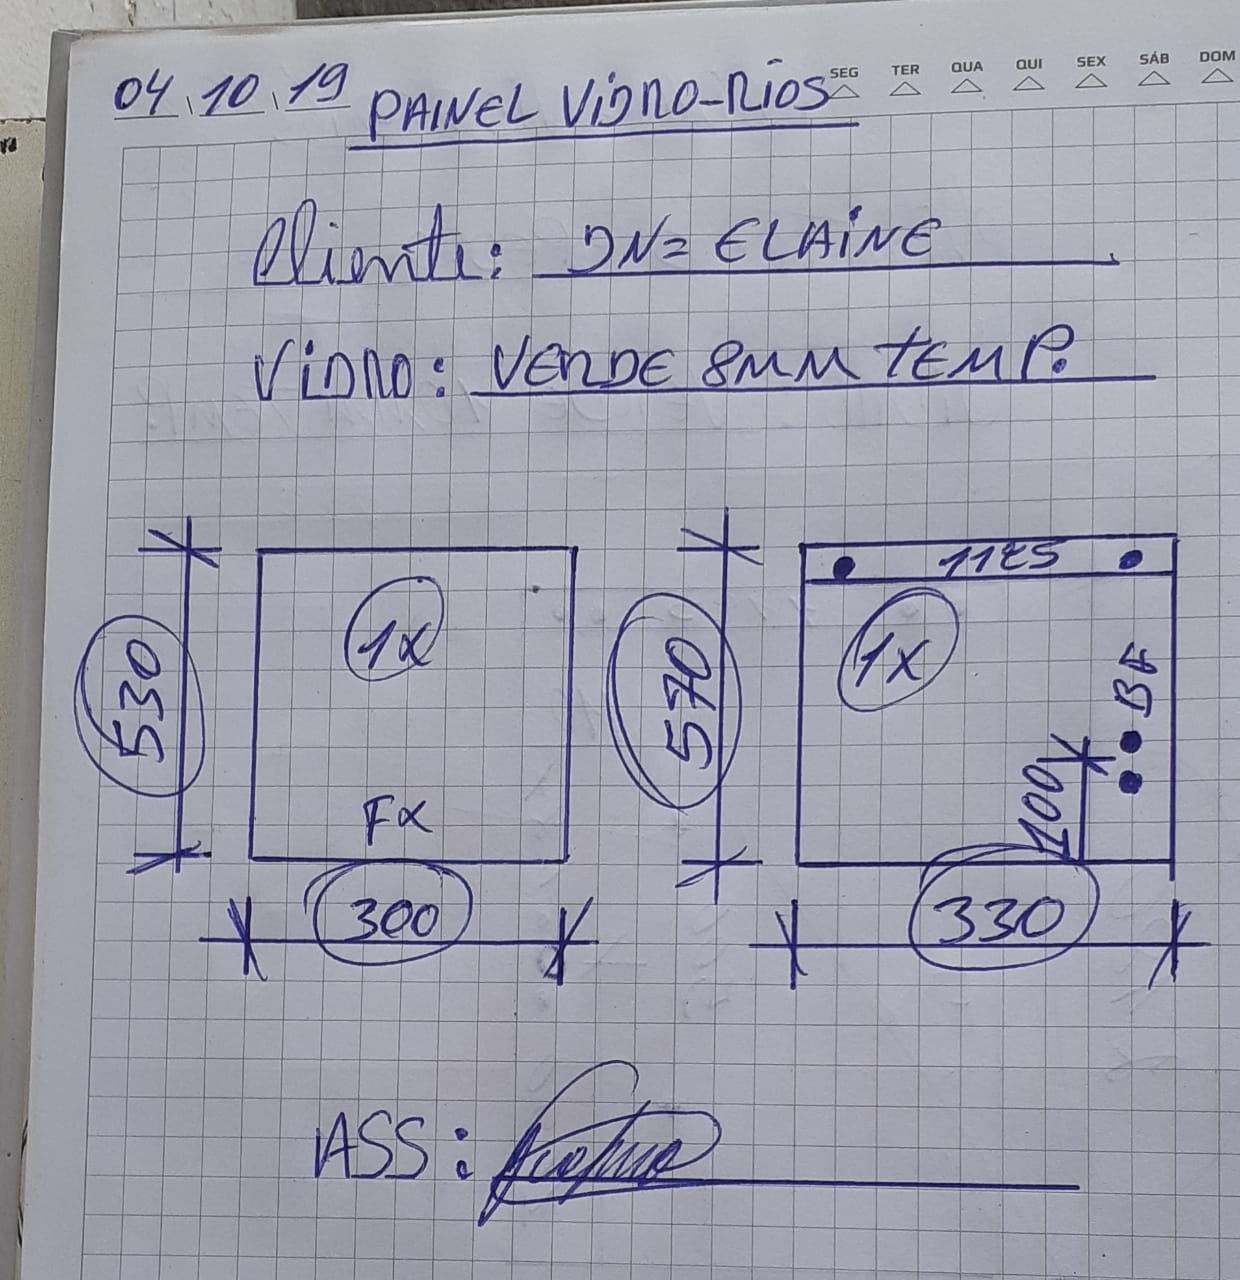 04 10 19 PAINEL VIDRO-RIOS
SEG TER QUA QUI SEX SÁB DOM
Cliente: DN= ELAINE
VIDRO: VERDE 8MM TEMP.
530
1X
FX
300
570
1125
1X
BF
100
330
ASS: